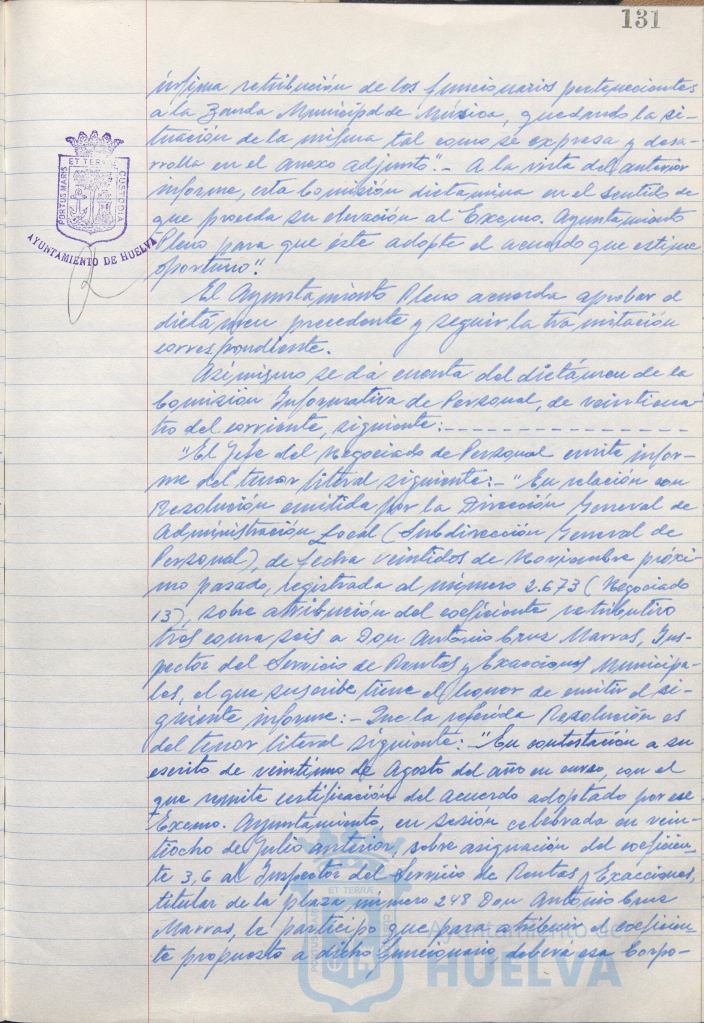 131
ínfima retribución de los funcionarios pertenecientes
a la Banda Municipal de Música, quedando la si-
tuación de la misma tal como se expresa y desa-
rrolla en el anexo adjunto".- A la vista del anterior
informe, esta Comisión dictamina en el sentido de
que proceda su elevación al Excmo. Ayuntamiento
Pleno para que éste adopte el acuerdo que estime
oportuno."
El Ayuntamiento Pleno acuerda aprobar el
dictámen precedente y seguir la tramitación
correspondiente.
Asímismo se dá cuenta del dictámen de la
Comisión Informativa de Personal, de veinticua-
tro del corriente, siguiente:
"El Jefe del Negociado de Personal emite infor-
me del tenor literal siguiente:- "En relación con
Resolución emitida por la Dirección General de
Administración Local (Subdirección General de
Personal), de fecha veintidos de Noviembre próxi-
mo pasado, registrada al número 2.673 (Negociado
13), sobre atribución del coeficiente retributivo
tres coma seis a Don Antonio Cruz Marvas, Ins-
pector del Servicio de Rentas y Exacciones Municipa-
les, el que suscribe tiene el honor de emitir el si-
guiente informe:- Que la referida Resolución es
del tenor literal siguiente: "En contestación a su
escrito de veintiuno de Agosto del año en curso, con el
que remite certificación del acuerdo adoptado por ese
Excmo. Ayuntamiento, en sesión celebrada en vein-
tiocho de Julio anterior, sobre asignación del coeficien-
te 3,6 al Inspector del Servicio de Rentas y Exacciones,
titular de la plaza número 248 Don Antonio Cruz
Marvas, le participo que para atribuir el coeficien-
te propuesto a dicho funcionario deberá esa Corpo-
PORTUS MARIS ET TERRÆ CUSTODIA
AYUNTAMIENTO DE HUELVA
Ayuntamiento de
HUELVA